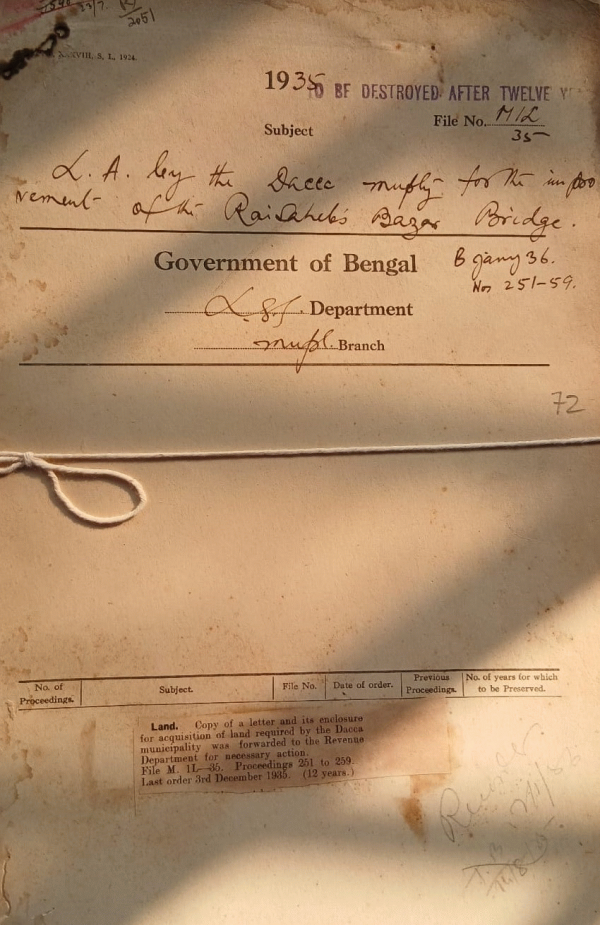 2051
XXVIII, S. L. 1924.
1935
TO BE DESTROYED AFTER TWELVE
File No. M1L/35
Subject
L. A. by the Dacca muplty for the impro
vement of the RaiSaheb's Bazar Bridge.
Government of Bengal
B Jany 36.
Nos 251-59.
Department
mupl. Branch
72
No. of Proceedings.
Subject.
File No.
Date of order.
Previous Proceedings.
No. of years for which to be Preserved.
Land. Copy of a letter and its enclosure
for acquisition of land required by the Dacca
municipality was forwarded to the Revenue
Department for necessary action.
File M. 1L—35. Proceedings 251 to 259.
Last order 3rd December 1935. (12 years.)